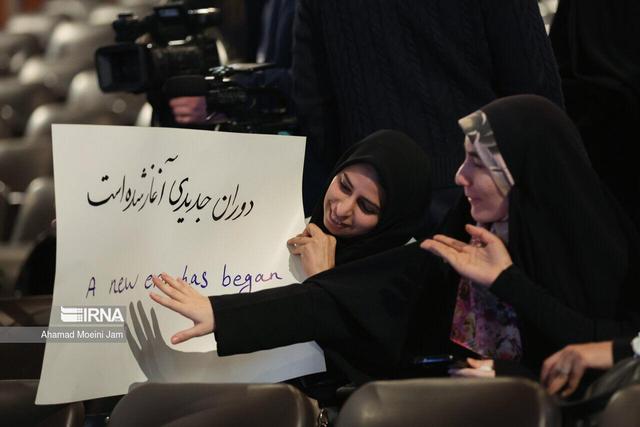 دوران جدیدی آغاز شده است
A new era has began
IRNA
Ahamad Moeini Jam